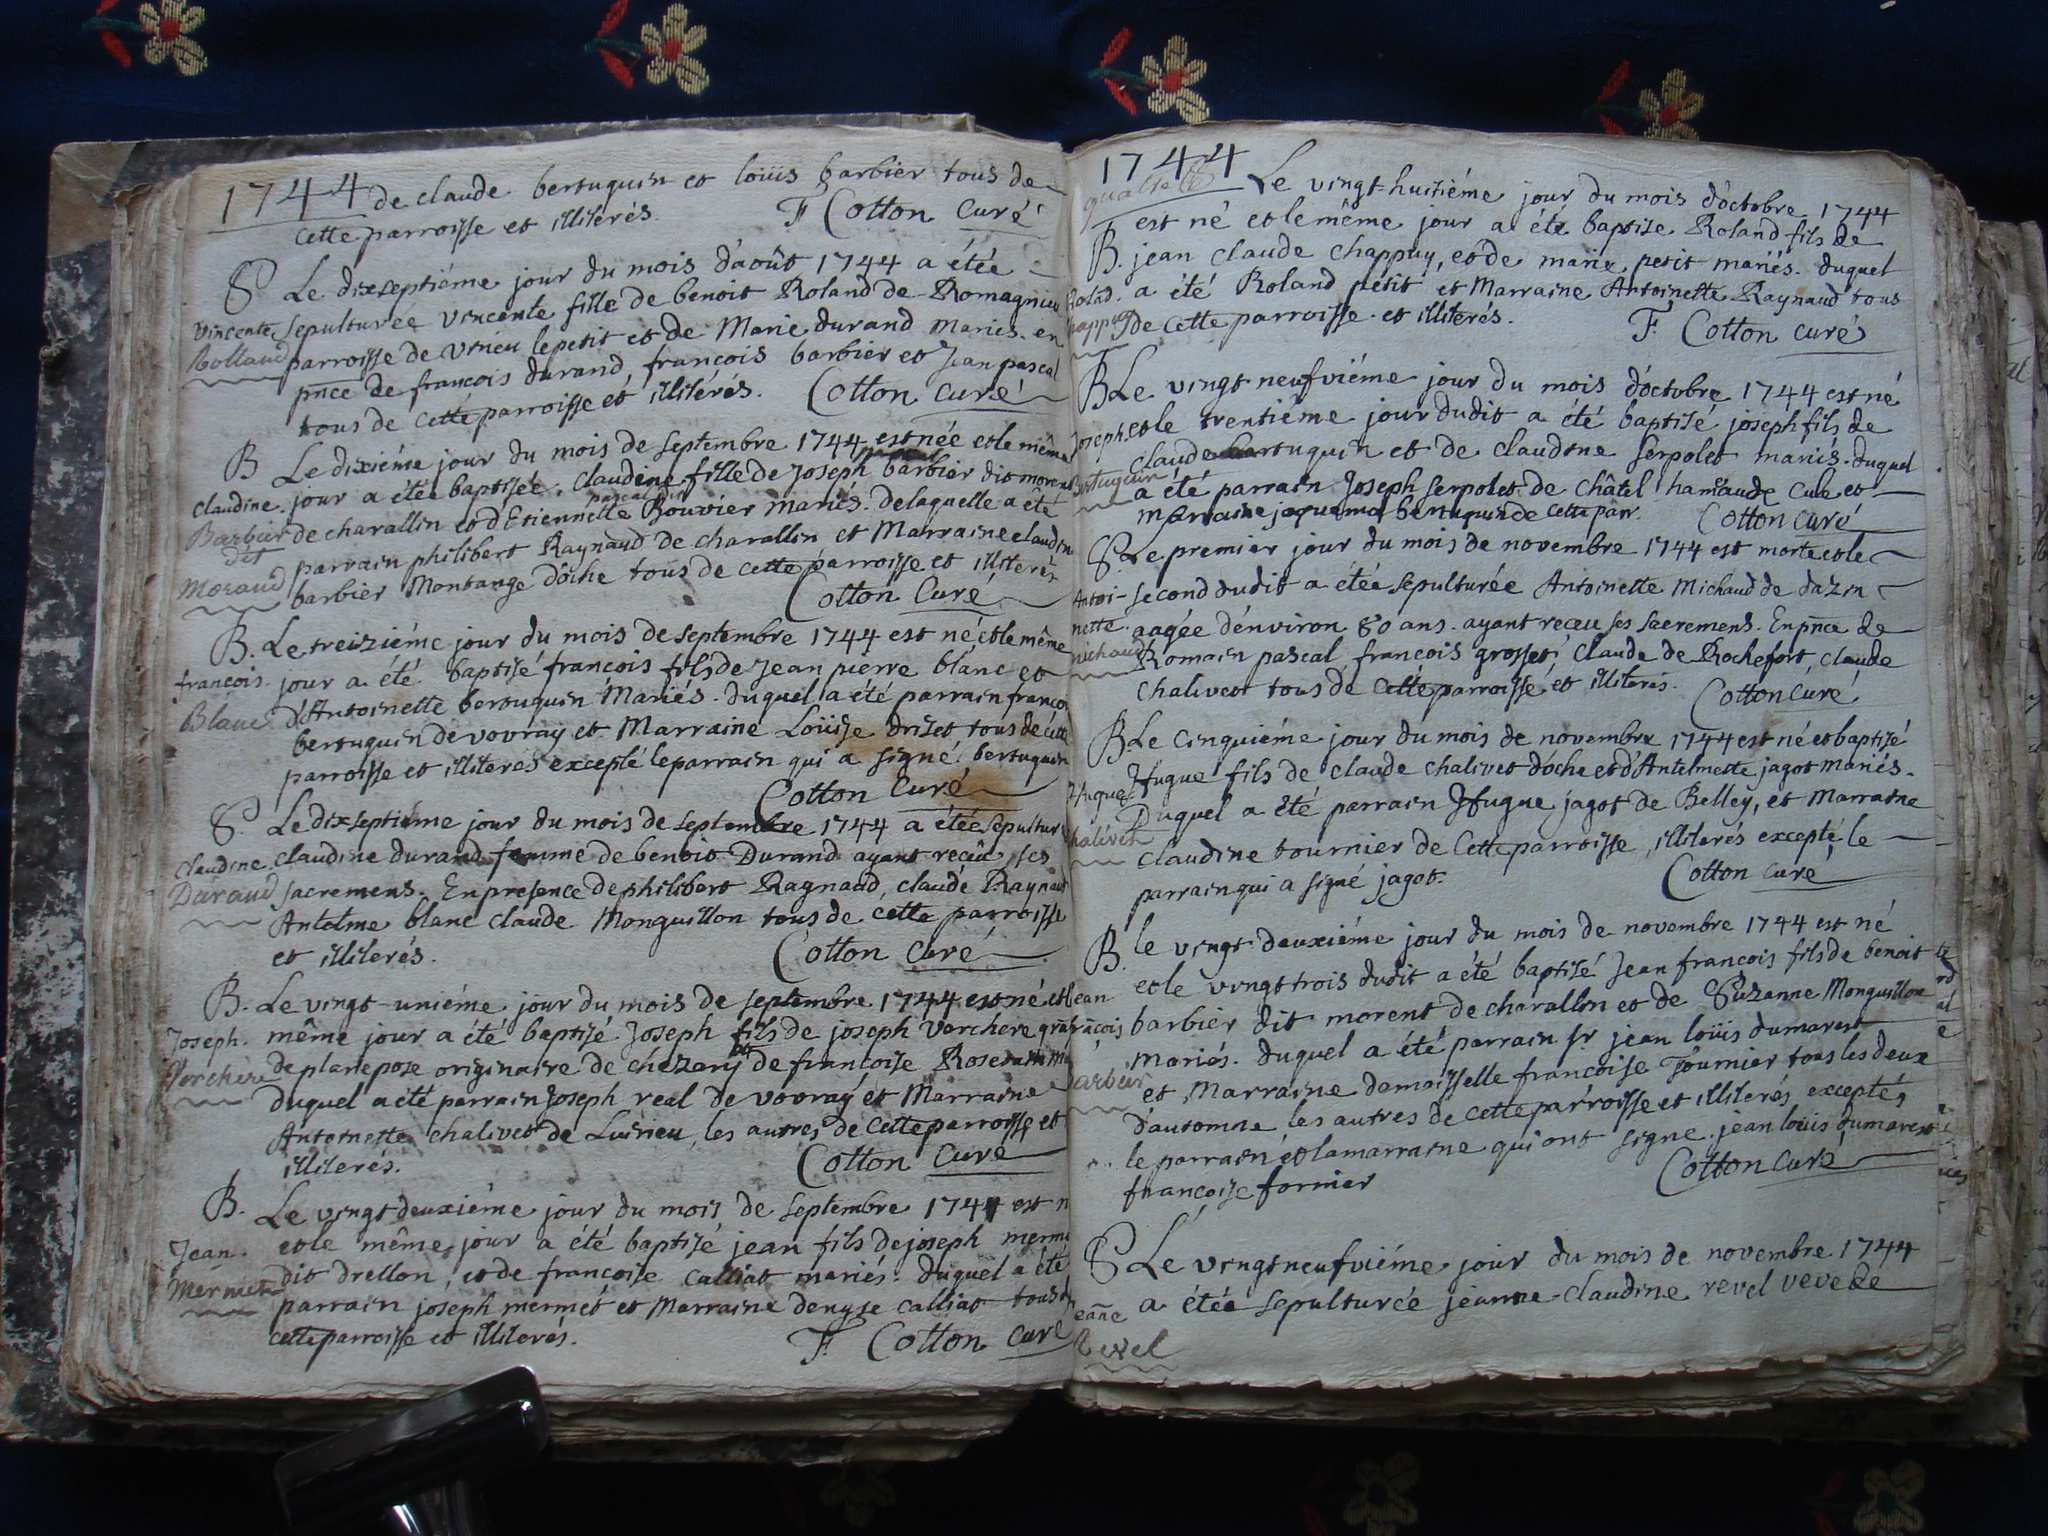 1744 de claude bertuquin et loüis barbier tous de
cette parroisse et illiterés. F Cotton Curé
S Le dixseptiéme jour du mois d'août 1744 a étée
vincente sepulturée vincente fille de benoit Roland de Romagnieu
Rolland parroisse de virieu le petit et de Marie durand Mariés. en
pnce de francois durand, francois barbier et Jean pascal
tous de cette parroisse et illiterés. Cotton curé
B Le dixiéme jour du mois de septembre 1744 est née et le même
claudine. jour a étée baptisée. Claudine fille de Joseph barbier dit morent
pascal dit
Barbier de charallin et d'Etiennette Bouvier mariés. de laquelle a été
dit parrain philibert Raynaud de charallin et Marraine claudine
Moraud barbier Montange d'oche tous de cette parroisse et illiterés
Cotton Curé
B. Le treiziéme jour du mois de septembre 1744 est né et le même
francois. jour a été baptisé francois fils de Jean pierre blanc et
Blanc d'Antoinette bertuquin Mariés. duquel a été parrain francois
bertuquin de vovray et Marraine Loüise drizet tous de cette
parroisse et illiterés excepté le parrain qui a signé. bertuquin
Cotton Curé
S. Le dixseptiéme jour du mois de septembre 1744 a étée sepultur
claudine claudine durand femme de benoit Durand ayant recëu ses
Durand sacremens. En presence de philibert Ragnaud, claude Raynaud
Antelme blanc claude Monguillon tous de cette parroisse
et illiterés. Cotton Curé
B. Le vingt-uniéme jour du mois de septembre 1744 est né et le
Joseph. même jour a été baptisé Joseph fils de joseph Verchere gra
Verchere de planepose originaire de chezery et de francoise Rose
duquel a été parrain Joseph real de vovray et Marraine
Antoinette chalivet de Luirieu, les autres de cette parroisse et
illiterés. Cotton Curé
B. Le vingt deuxiéme jour du mois de septembre 1744 est n
Jean. et le même jour a été baptisé jean fils de joseph merme
Mermet dit drellon, et de francoise calliat mariés. duquel a été
parrain joseph mermet et Marraine denyse calliat tous d
cette parroisse et illiterés. F. Cotton curé
1744 Le vingt-huitiéme jour du mois d'octobre 1744
est né et le même jour a été baptise Roland fils de
B. jean claude chappuy, et de marie petit mariés. duquel
Rolad. a été Roland petit et Marraine Antoinette Raynaud tous
happuy de cette parroisse et illiterés. F. Cotton curé
B Le vingt neufviéme jour du mois d'octobre 1744 est né
Joseph. et le trentiéme jour dudit a été baptisé joseph fils de
claude bertuquin et de claudine serpolet mariés. duquel
Bertuquin a été parrain Joseph serpolet de châtel
marraine bertuquin de cette parr. Cotton curé
S. Le premier jour du mois de novembre 1744 est morte et le
Antoi- second dudit a étée sepulturée Antoinette Michaud de dazin
nette. aagée d'environ 80 ans. ayant receu ses sacremens. En pnce de
michaud Romain pascal, francois grosset, Claude de Rochefort, claude
chalivet tous de cette parroisse et illiterés. Cotton Curé
B Le cinquiéme jour du mois de novembre 1744 est né et baptisé
Hugue Hugue fils de claude chalivet d'oche et d'Antelmette jagot mariés.
Duquel a été parrain Hugue jagot de Belley, et Marraine
halivet claudine tournier de Cette parroisse, illiterés excepté le
parrain qui a signé jagot. Cotton curé
B. le vingt deuxiéme jour du mois de novembre 1744 est né
et le vingt trois dudit a été baptisé Jean francois fils de benoit
Jean
frācois barbier dit morent de charallin et de Suzanne Monguillon
mariés. duquel a été parrain sr jean loüis dumarest
arbier et Marraine damoisselle francoise Tournier tous les deux
d'automne les autres de cette parroisse et illiterés, exceptés
le parrain et la marraine qui ont signé. jean loüis dumarest
francoise fornier Cotton curé
S Le vingt neufviéme jour du mois de novembre 1744
eañe a étée sepulturée jeanne-claudine revel veve de
Revel